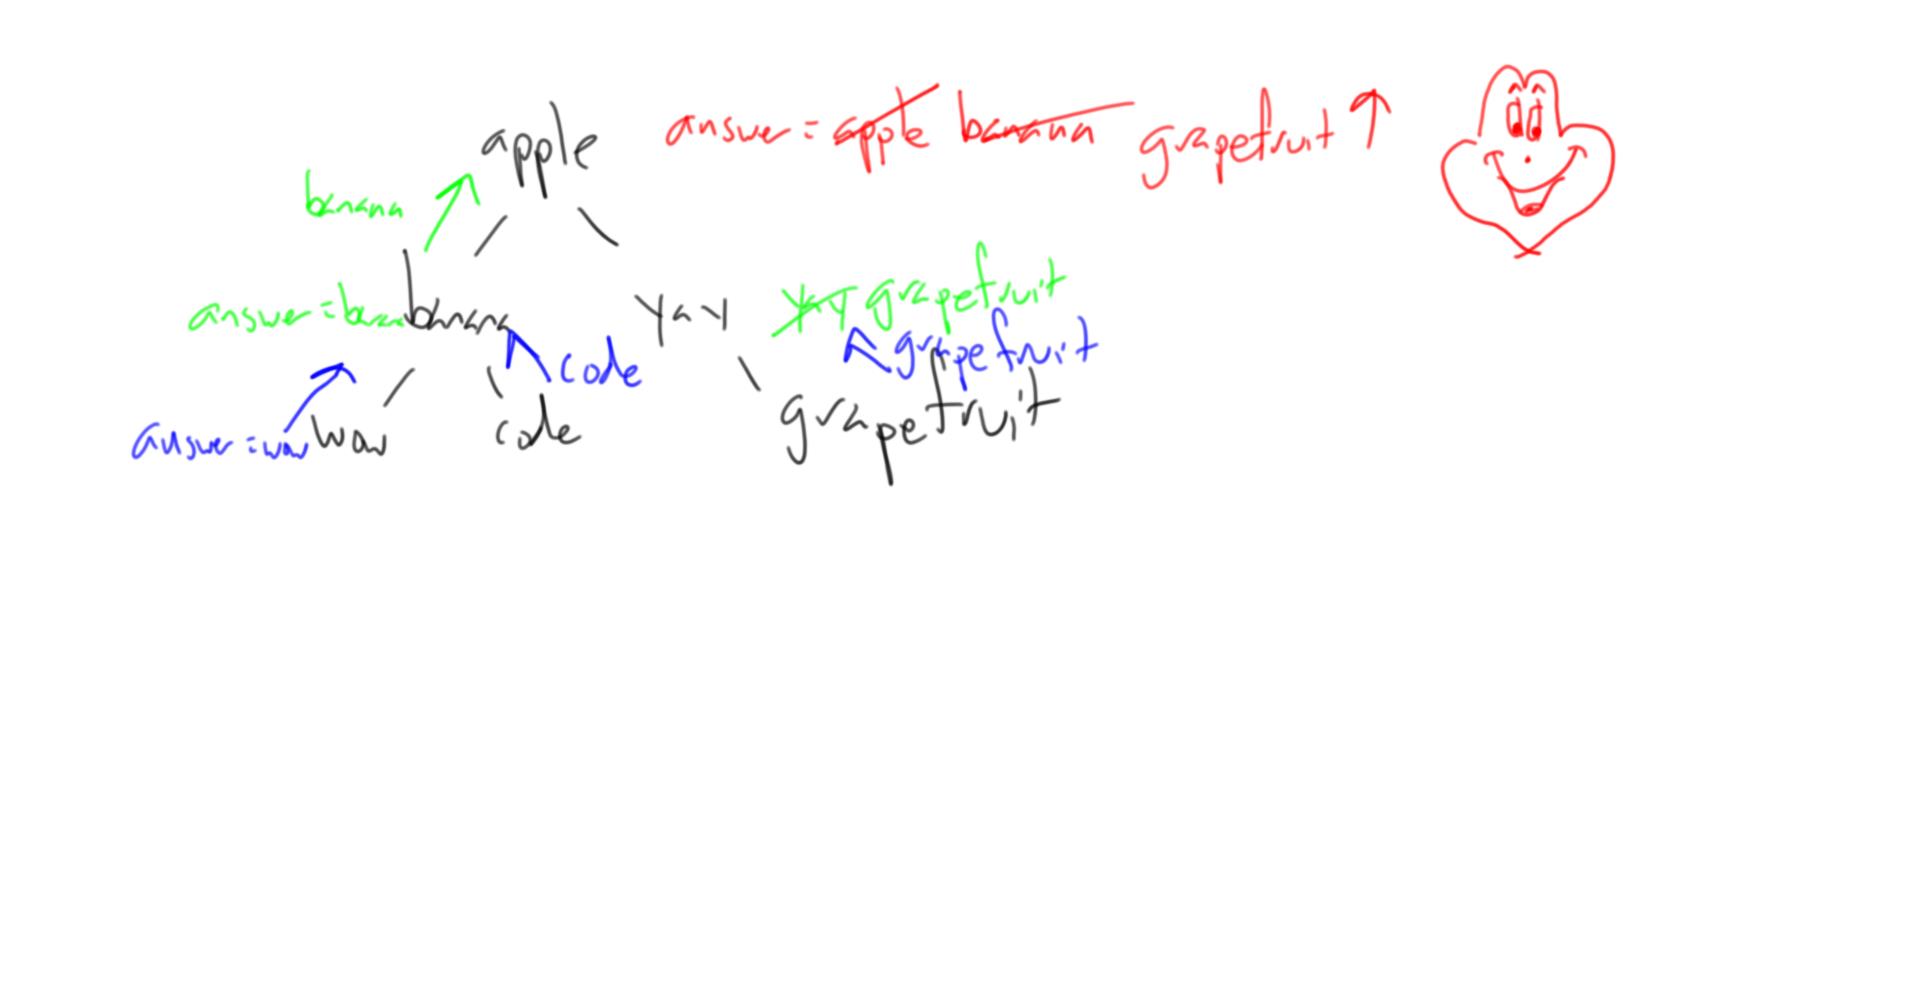 apple answer = apple banana grapefruit
banana
answer = banana banana yay yay grapefruit
code grapefruit
answer = wow wow code grapefruit